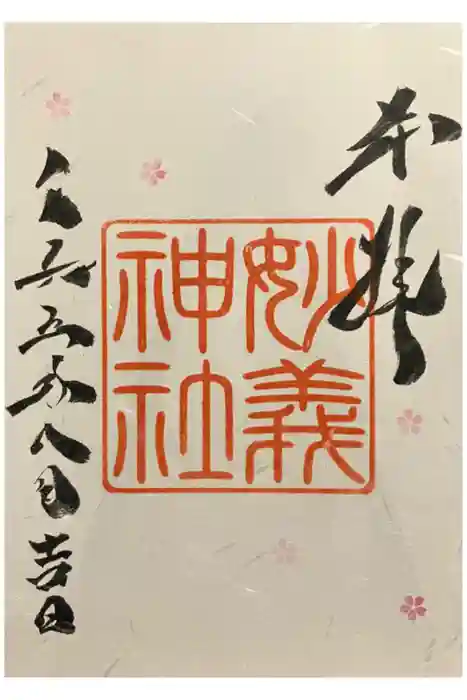 奉拝
妙義
神社
令和五年八月吉日